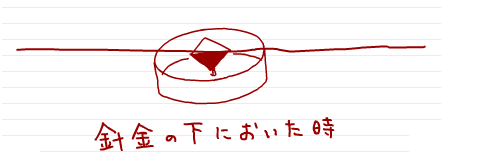 針金の下においた時